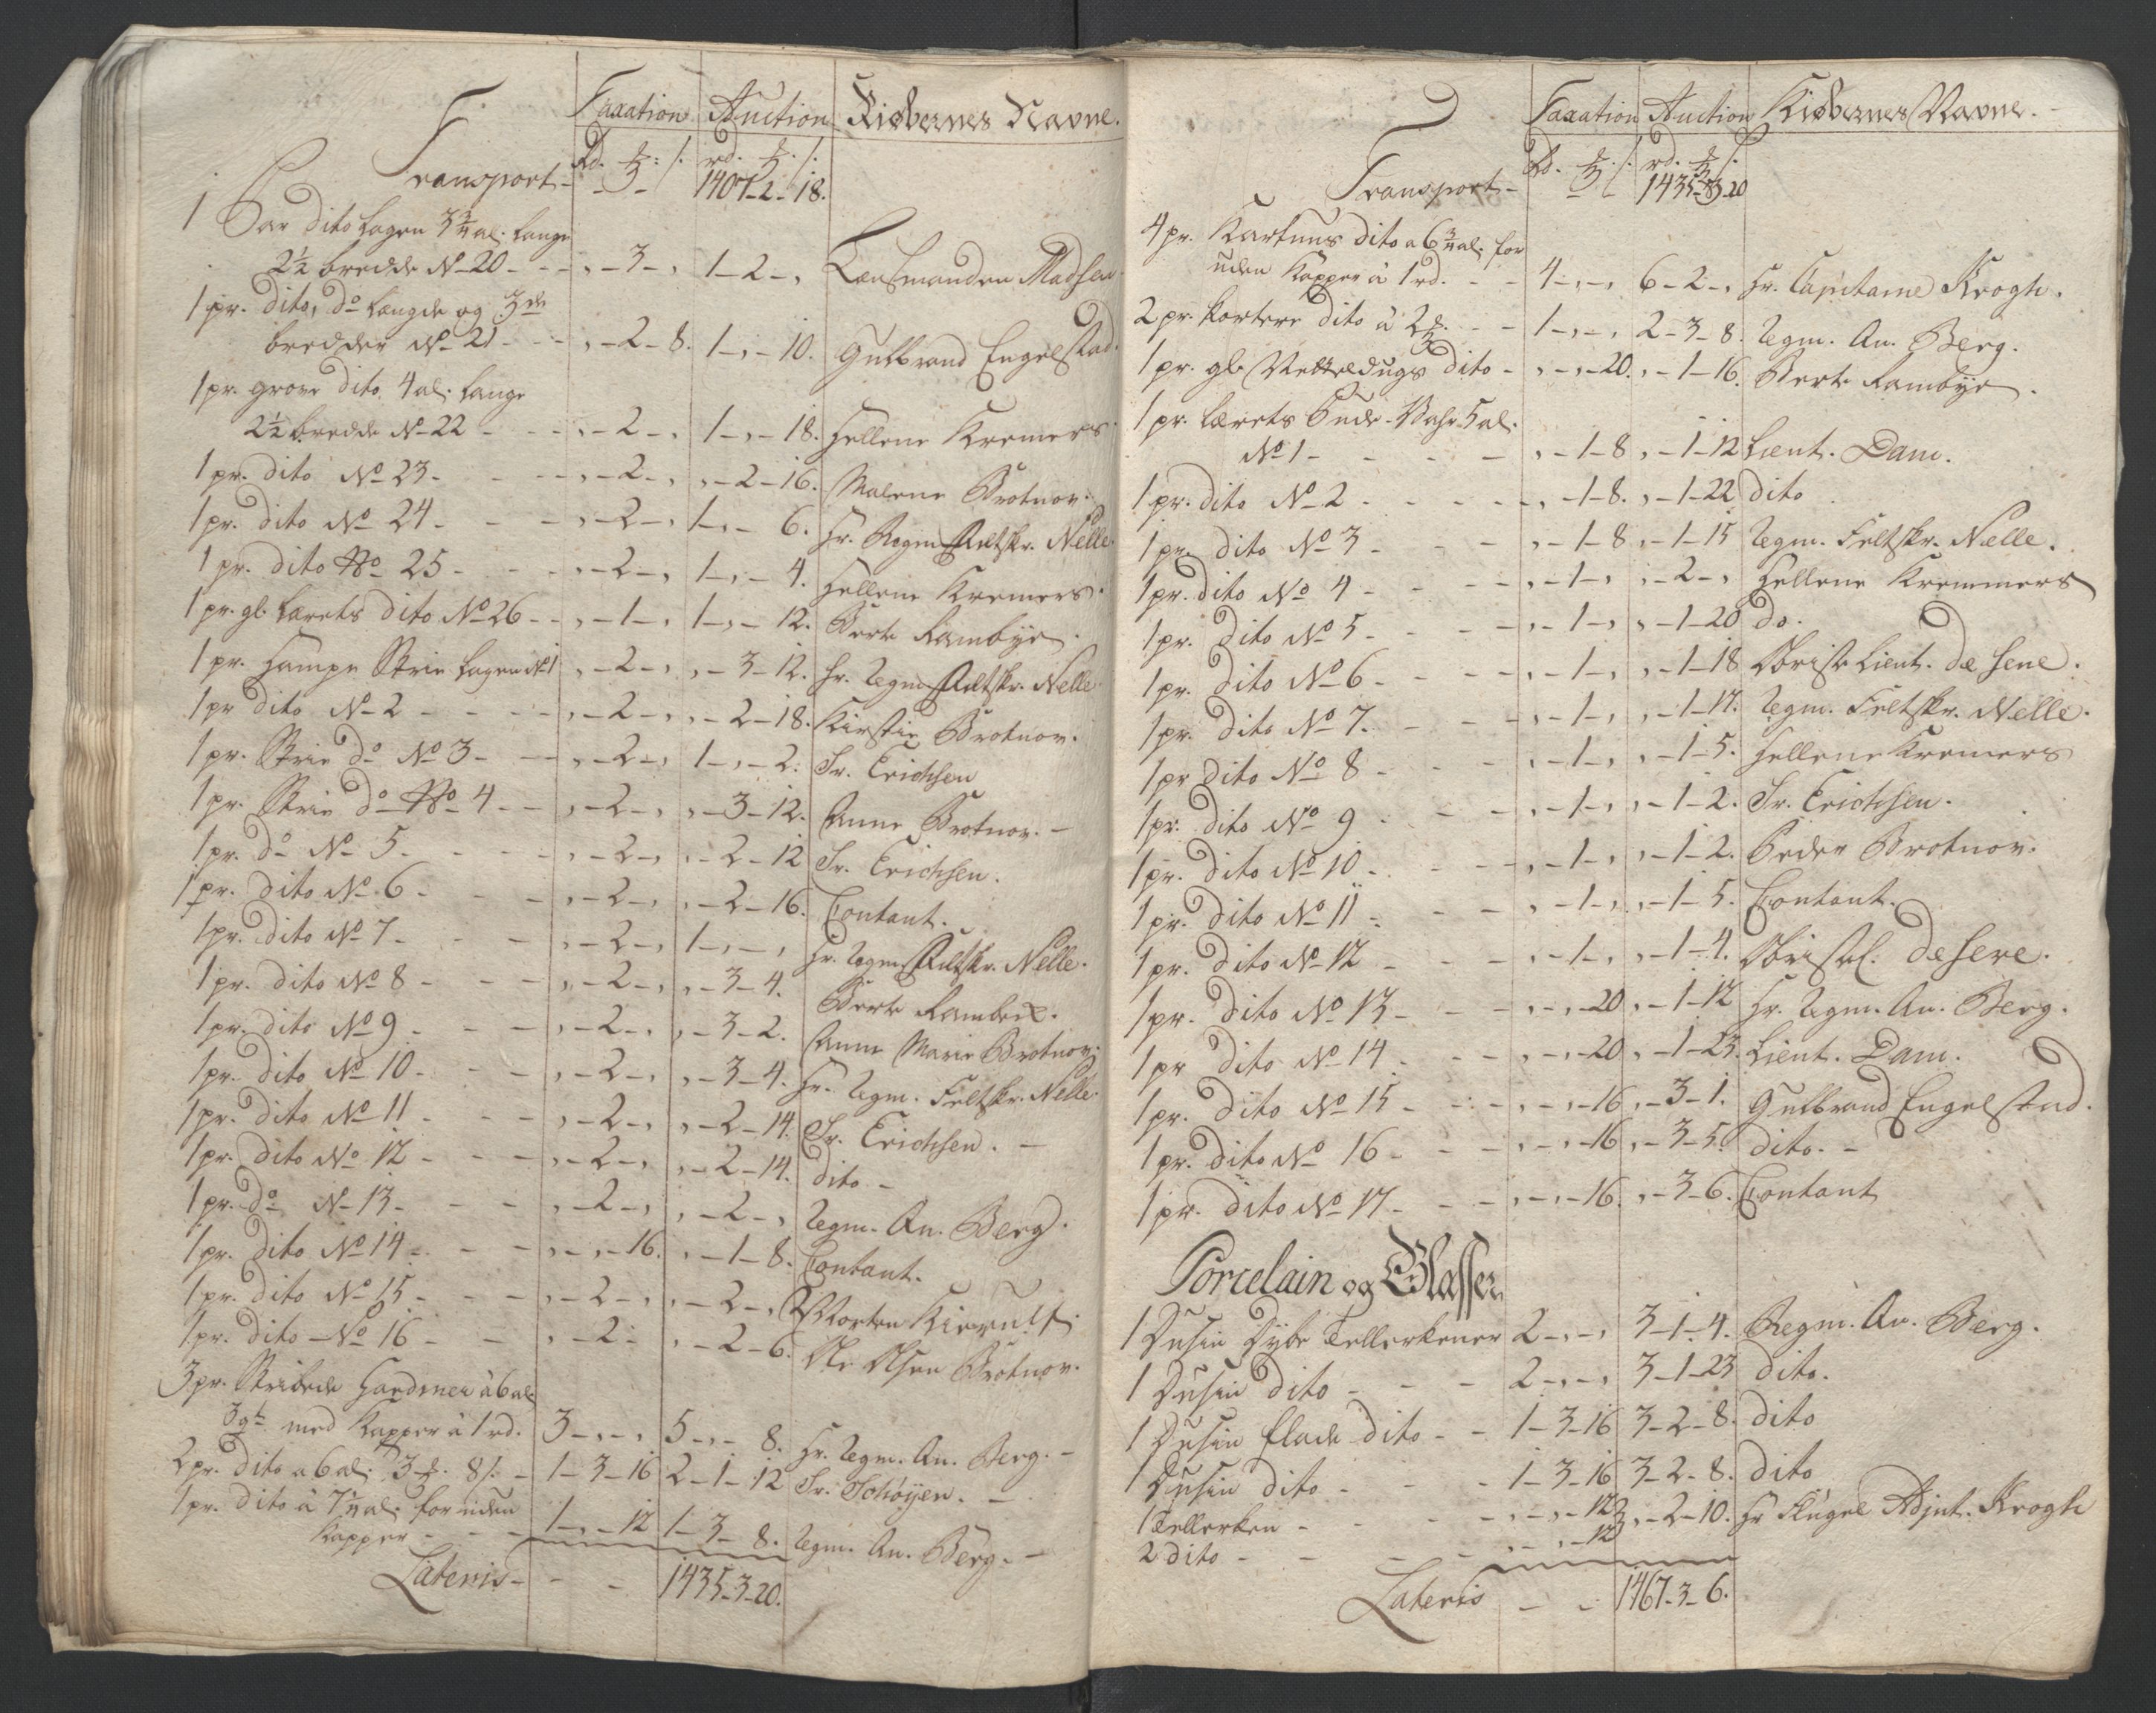 Taxation Auction Kiøbernes Navne.
Rd. ꝛ: /. rd. ꝛ. /.
Transport - 1407-2-18.
1 Par dito Lagen 3 3/4 al. lange
2½ bredde No 20 - - - „-3-„ 1-2-„ Lensmanden Madsen
1 pr. dito, do længde og 3de
bredder No 21 - - „-2-8. 1-„-10. Gulbrand Engelstad.
1 pr. grove dito 4 al. lange
2½ bredde No 22 - - „-2-„ 1-„-18. Hellene Kremers
1 pr. dito No 23 - - „-2-„ „-2-16. Malene Brotnov.
1 pr. dito No 24 - - „-2-„ 1-„-6. Hr. Regm Feltskr. Nelle.
1 pr. dito No 25 - - „-2-„ 1-„-4. Hellene Kremers.
1 pr. gl. Lærets dito No 26 - - „-1-„ 1-„-12. Berte Rambye.
1 pr. Hampe Strie Lagen No 1 „-2-„ „-3-12. Hr. Regm Feltskr. Nelle
1 pr dito No 2 - - - „-2-„ „-2-18. Kirstie Brotnov.
1 pr. Strie do No 3 - - „-2-„ 1-„-2. Sr. Erichsen
1 pr. Strie do No 4 - - „-2-„ „-3-12. Anne Brotnov. -
1 pr. do No 5 - - - „-2-„ „-2-12 Sr. Erichsen.
1 pr. dito No 6 - - - „-2-„ „-2-16. Contant.
1 pr. dito No 7 - - - „-2-„ 1-„-„ Hr. Regm Feltskr. Nelle.
1 pr. dito No 8 - - - „-2-„ „-3-4. Berte Rambye.
1 pr. dito No 9 - - - „-2-„ „-3-2. Anne Marie Brotnov.
1 pr. dito No 10 - - - „-2-„ „-3-4. Hr. Regm. Feltskr. Nelle
1 pr. dito No 11 - - - „-2-„ „-2-14. Sr. Erichsen. -
1 pr. dito No 12 - - - „-2-„ „-2-14. dito -
1 pr. do No 13 - - - „-2-„ „-2-„ Regm. Au. Berg.
1 pr. dito No 14 - - - „-„-16. „-1-8. Contant.
1 pr. dito No 15 - - - „-2-„ „-2-„ Morten Kierulf
1 pr. dito No 16 - - „-2- „-2-6. Ole Olsen Brotnov.
3 pr. Stribede Gardiner à 6 al.
med Kapper à 1 rd. 3-„-„ 5-„-8. Hr. Regm. Au. Berg. -
2 pr. dito a 6 al. 3 ꝛ. 8 /. - 1-3-16 2-1-12 Sr. Schøyen. -
1 pr. dito à 7¼ al. foruden
Kapper - - - 1-„-12 1-3-8. Regm. Au. Berg. -
Lateris - - - 1435-3-20.
Taxation Auction Kiøbernes Navne.
Rd. ꝛ. /. rd. ꝛ. /.
Transport - 1435-3-20
4 pr. Kartuns dito a 6 3/4 al. for
uden Kapper à 1 rd. - - 4-„-„ 6-2-„ Hr. Capitaine Krogh.
2 pr. kortere dito à 2 ꝛ. - - 1-„-„ 2-3-8. Regm. Au. Berg.
1 pr. gl. Netteldugs dito - „-„-20. „-1-16. Berte Rambye.
1 pr. Lærets Pude-Vahr 5 al.
No 1 - - - - „-1-8 „-1-12 Lieut. Dam.
1 pr. dito No 2 - - - - „-1-8. „-1-22 dito
1 pr. dito No 3 - - - „-1-8 „-1-15 Regm. Feltskr. Nelle.
1 pr. dito No 4 - - - „-1-„ „-2-„ Hellene Kremmers
1 pr. dito No 5 - - - „-1-„ „-1-20 do.
1 pr. dito No 6 - - - „-1-„ „-1-18 Obrist Lieut. de Sene.
1 pr. dito No 7. - - - „-1-„ „-1-17. Regm. Feltskr. Nelle.
1 pr dito No 8 - - - „-1-„ „-1-5. Hellene Kremers
1 pr. dito No 9 - - - „-1-„ „-1-2. Sr. Erichsen.
1 pr. dito No 10 - - - „-1-„ „-1-2. Peder Brotnov.
1 pr. dito No 11 - - - „-1-„ „-1-5. Contant.
1 pr. dito No 12 - - - „-1-„ „-1-4. Obristl. de Sere.
1 pr. dito No 13 - - - „-„-20 „-1-12 Hr. Regm. Au. Berg.
1 pr dito No 14 - - - „-„-20 „-1-23. Lieut. Dam.
1 pr. dito No 15 - - - „-„-16 „-3-1. Gulbrand Engelstad.
1 pr. dito No 16 - - - „-„-16 „-3-5. dito. -
1 pr. dito No 17 - - - „-„-16. „-3-6. Contant
Porcelain og Glasser
1 Dusin Dybe Tellerkener 2-„-„ 3-1-4. Regm. Au. Berg.
1 Dusin dito - - - 2-„-„ 3-1-23 dito.
1 Dusin flade dito - - 1-3-16 3-2-8. dito
1 Dusin dito - - - 1-3-16 3-2-8. dito
1 Tellerken - - - - „-„-12 „-2-10. Hr Flügel Adjut. Krogh
2 dito - - - - „-„-12
Lateris - - 1467-3-6.